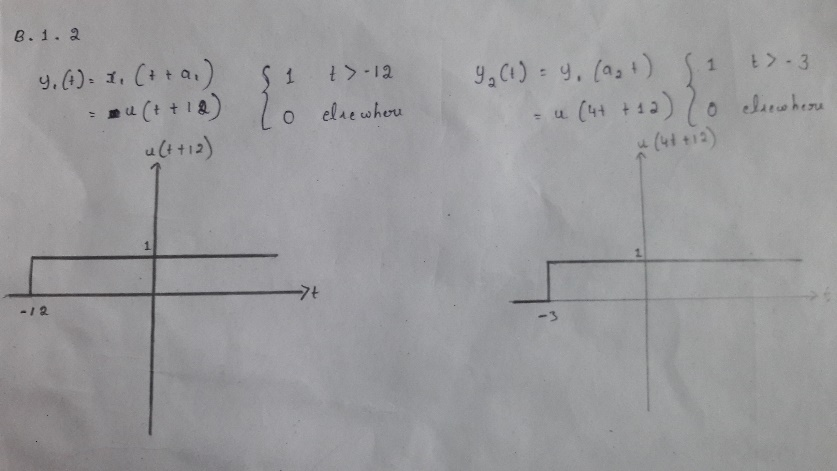 B.1.2
y₁(t) = x₁(t + a₁) { 1 t > -12
= u(t + 12) { 0 elsewhere
u(t+12)
1
t
-12
y₂(t) = y₁(a₂t) { 1 t > -3
= u(4t + 12) { 0 elsewhere
u(4t+12)
1
t
-3